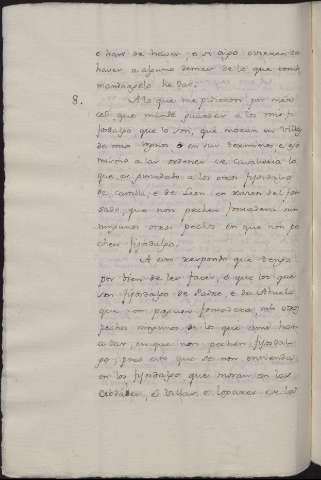 e han de haver e si algo
haver a alguno demas de lo que
mandagelo de dar.
8. A lo que me pidieron por mer
ced que mande guardar a los mis fi
josdalgo que lo son, que moran en villas
de mis Regnos e en sus terminos e eso
mismo a las ordenes de cavalleria lo
que es guardado a los otros fijosdalgo
de Castilla, e de Leon en razon del fon
sado, que non pechen fonsadera nin
ningunos otros pechos en que non pe
chen fijosdalgo.
A esto respondo que tengo
por bien de les facer, e que los que
son fijosdalgo de Padre, e de Abuelo
que non paguen fonsadera, nin otro
pecho ninguno de lo que ami han
a dar, en que non pechen fijosdal
go; pero esto que se non entienda
en los fijosdalgo que moran en las
Cibdades, e Villas, e logares en los